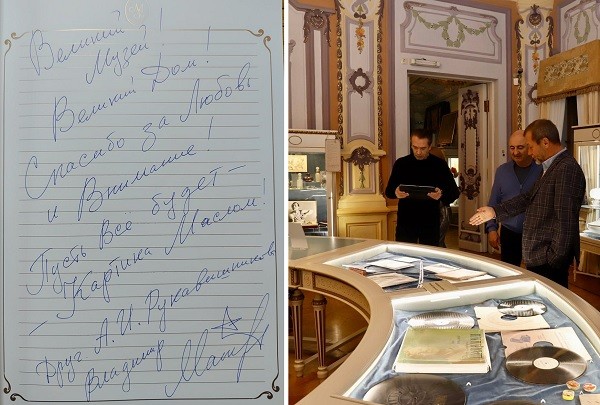 Великий
Музей!
Великий Дом!
Спасибо за Любовь
и Внимание!
Пусть Все будет —
— Картина Маслом!
Друг А.И. Рукавишникова
Владимир